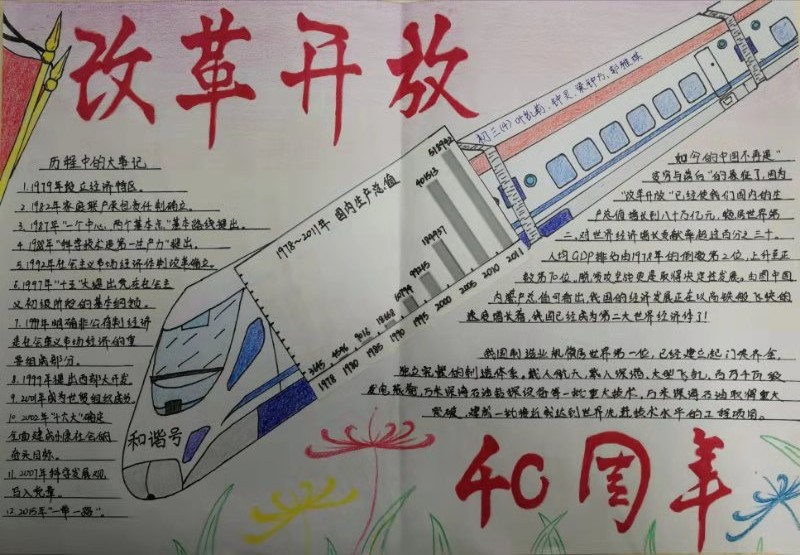 改革开放
历程中的大事记
1.1979年设立经济特区。
2.1982年家庭联产承包责任制确立。
3.1987年"一个中心，两个基本点"基本路线提出。
4.1988年"科学技术是第一生产力"提出。
5.1992年社会主义市场经济体制改革确立。
6.1997年"十五"大提出党在社会主
义初级阶段的基本纲领。
7.1999年明确非公有制经济
是社会主义市场经济的重
要组成部分。
8.1999年提出西部大开发。
9.2001年成为世贸组织成员。
10.2002年"十六大"确定
全面建成小康社会的
奋斗目标。
11.2007年科学发展观
写入党章。
12.2015年"一带一路"。
1978~2011年 国内生产总值
3645
4546
9016
18668
60794
99215
184937
401513
518942
1978
1980
1985
1990
1995
2000
2005
2010
2011
和谐号
初三(4)
如今的中国不再是"
贫穷与落后"的象征了，因为
"改革开放"已经使我们国内的生
产总值增长到八十万亿元，稳居世界第
二，对世界经济增长贡献率超过百分之三十。
人均GDP排位由1978年的倒数第2位，上升至正
数第70位。脱贫攻坚战更是取得决定性发展。由图中国
内生产总值可看出，我国的经济发展正在以高铁般飞快的
速度增长着，我国已经成为第二大世界经济体了！
我国制造业规模居世界第一位，已经建立起门类齐全、
独立完整的制造体系。载人航天、载人深潜、大型飞机、
万米深海石油钻探设备等一批重大技术，万米深海石油取得重大
突破，建成一批接近或达到世界先进技术水平的工程项目。
40周年